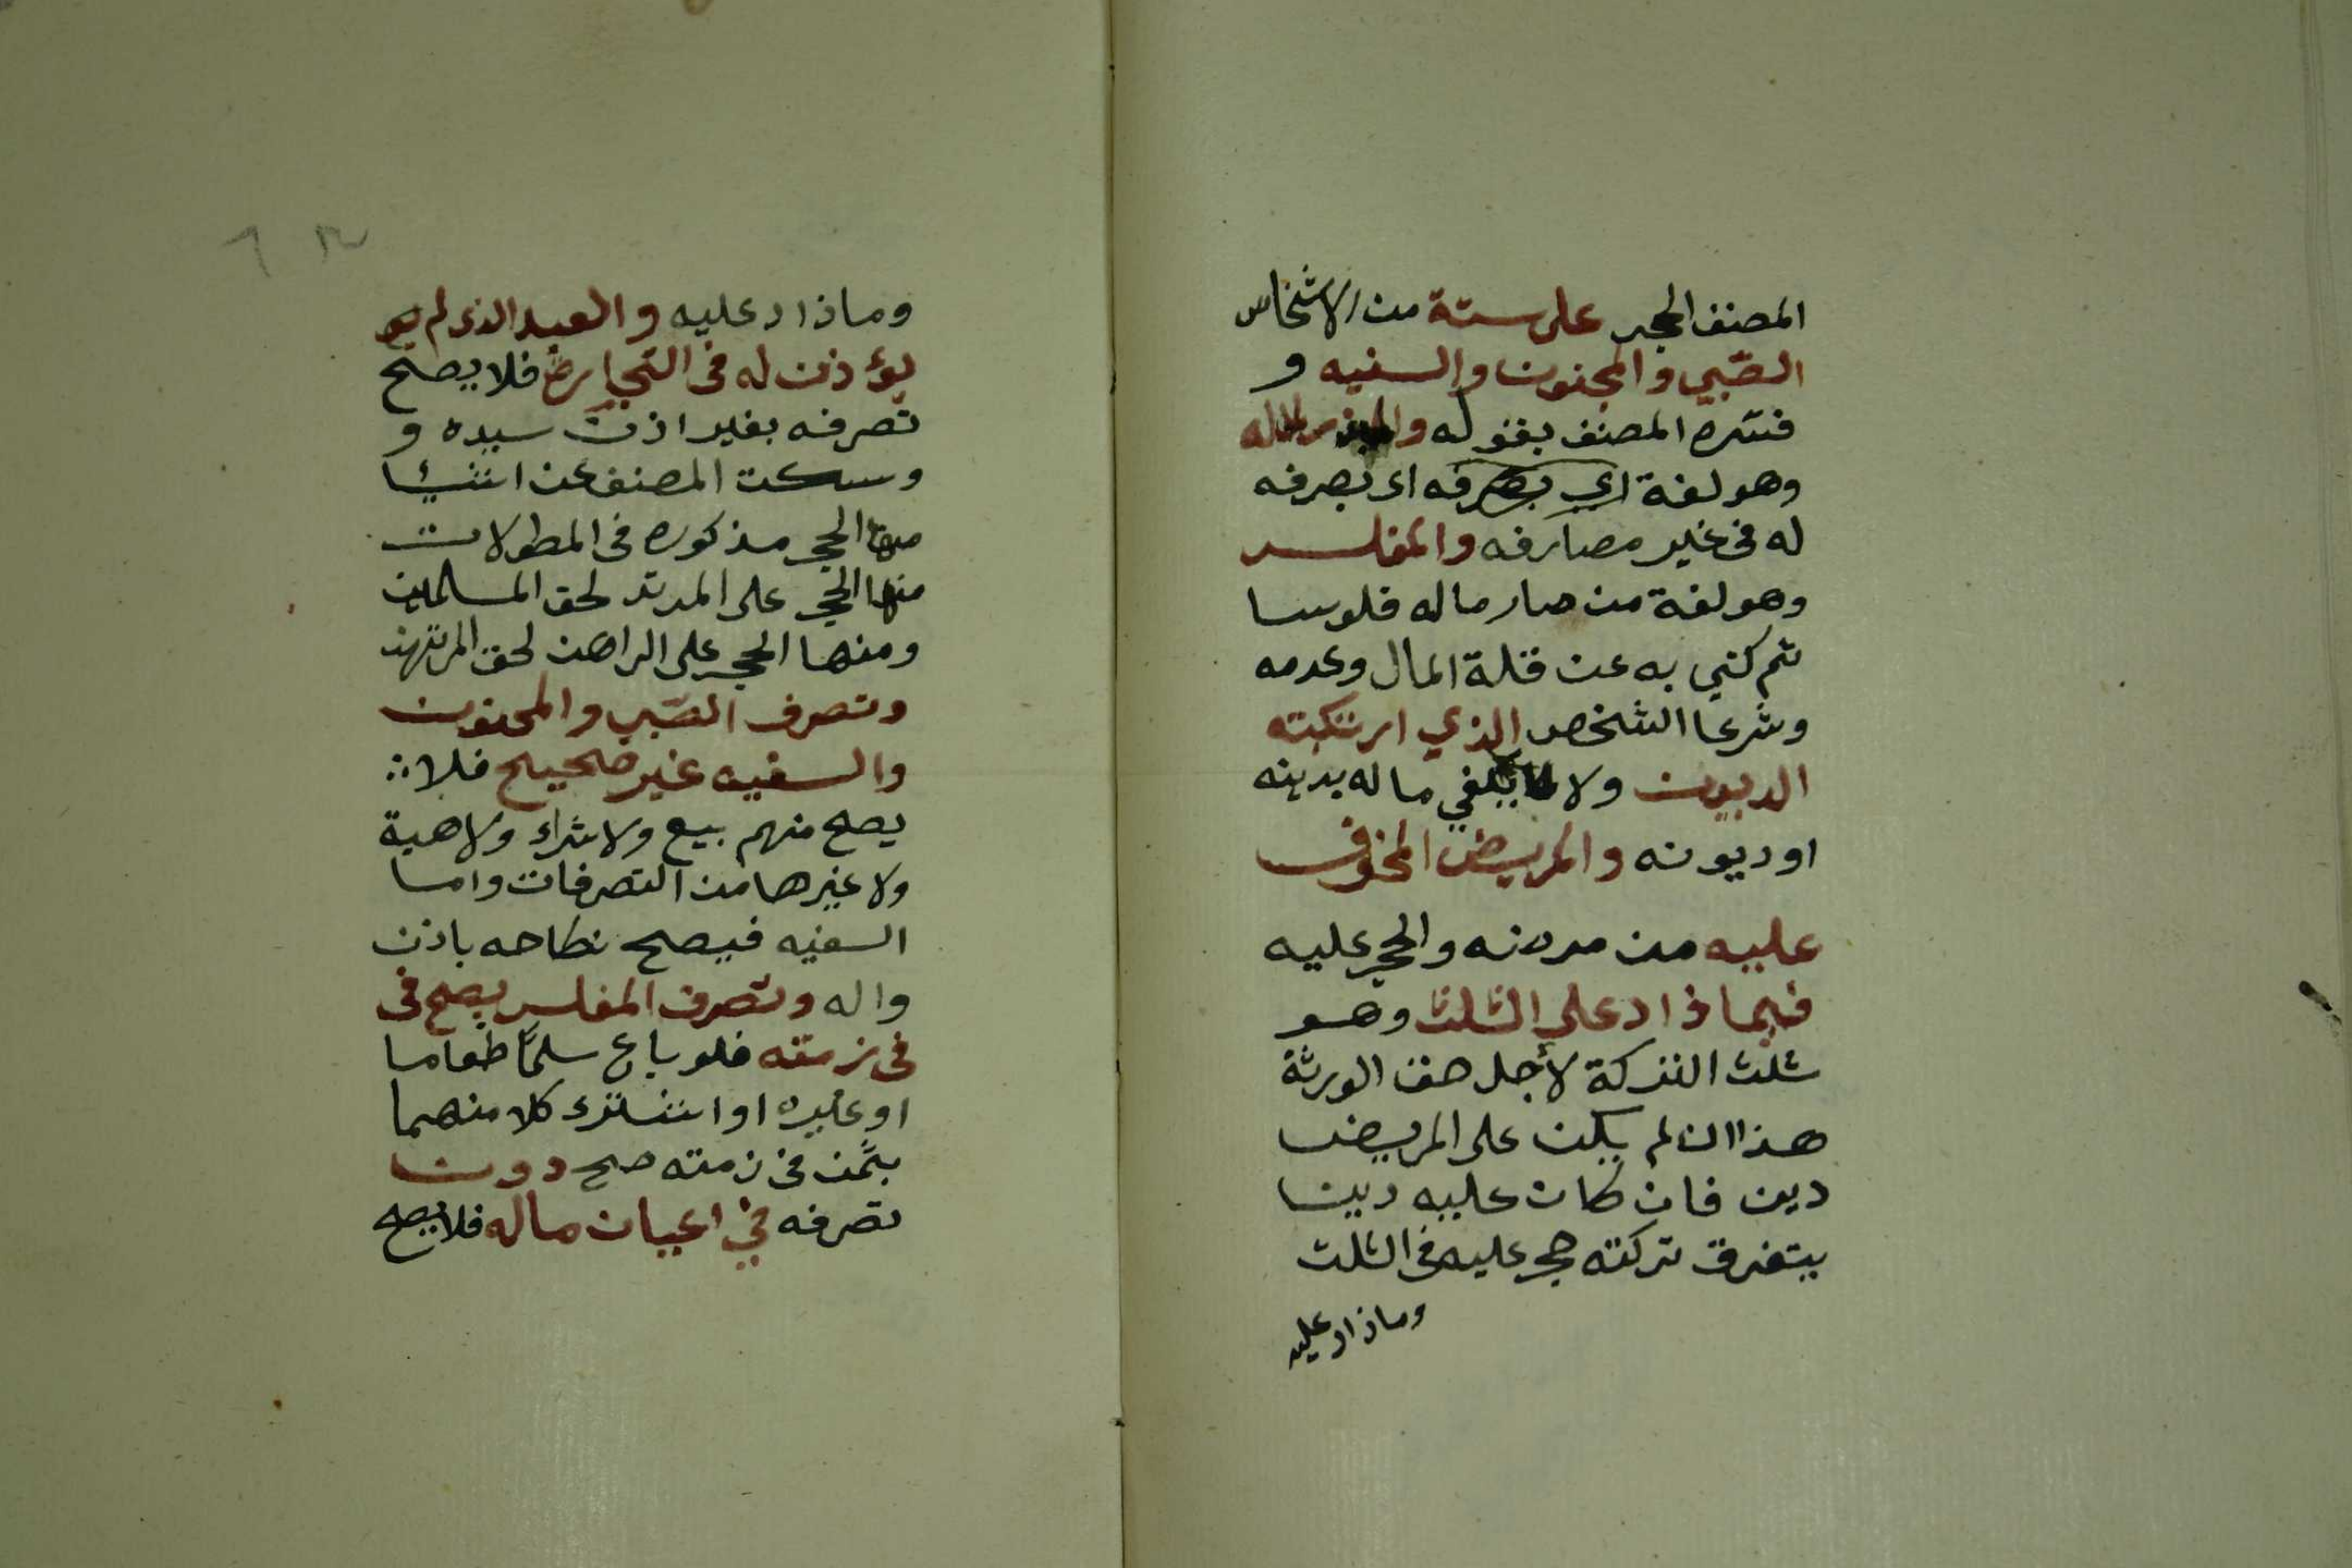 المصنف الحجر على ستة من الاشخاس
الصّبي والمجنون والسفيه و
فسّره المصنف بقوله لماله
وهو لغة اي بصرفه اى بصرفه
له فى غير مصارفه والمفلس
وهو لغة من صار ماله فلوسا
ثم كني به عن قلة المال وعدمه
وشرعا الشخص الذي ارتكبته
الديون ولا يكفي ماله بدينه
او ديونه والمريض المخوف
عليه من مرضه والحجر عليه
فيما زاد على الثلث وهو
ثلث التركة لأجل حق الورثة
هذا ان لم يكن على المريض
دين فان كان عليه دينا
يتغرق تركته حجر عليه فى الثلث
وما زاد عليه
وما زاد عليه والعبد الذى لم يو
يؤذن له فى التجارة فلا يصح
تصرفه بغير اذن سيده و
وسكت المصنف عن اشيئا
منها الحجر مذكوره فى المطولات
منها الحجر على المرتد لحق المسلمين
ومنها الحجر على الراهن لحق المرتهن
وتصرف الصّبى والمجنون
والسفيه غير صحيح فلا
يصح منهم بيع ولا شراء ولا هبة
ولا غيرها من التصرفات واما
السفيه فيصح نكاحه باذن
واله وتصرف المفلس يصح فى
فى ذمته فلو باع سلمًا طعاما
او غيره او اشترى كلا منهما
بثمن فى ذمته صح دون
تصرفه في اعيان ماله فلا يصح